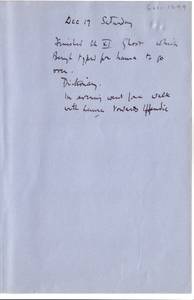 Dec 19 Saturday
Finished Ch XI Ghost which
Bergh typed for Laura to go
over.
Dictionary.
In evening went for a walk
with Laura towards